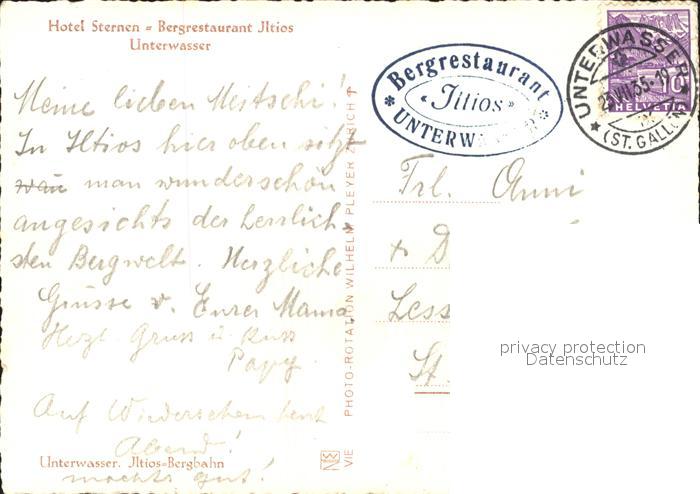 Hotel Sternen = Bergrestaurant Jltios
Unterwasser
Meine lieben Meitschi!
In Iltios hier oben sitzt
man wunderschön
angesichts der herrlich-
sten Bergwelt. Herzliche
Grüsse v. Eurer Mama
Herzl. Gruss u. Kuss
Papy.
Auf Wiedersehen heut
Abend!
machts gut!
Unterwasser. Jltios=Bergbahn
VIE PHOTO-ROTATION WILHELM PLEYER ZÜRICH
Bergrestaurant
«Jltios»
UNTERWASSER
UNTERWASSER
VII.35-19
(ST. GALLEN)
10
HELVETIA
Frl. Anni
+ D
Less
St.
privacy protection
Datenschutz